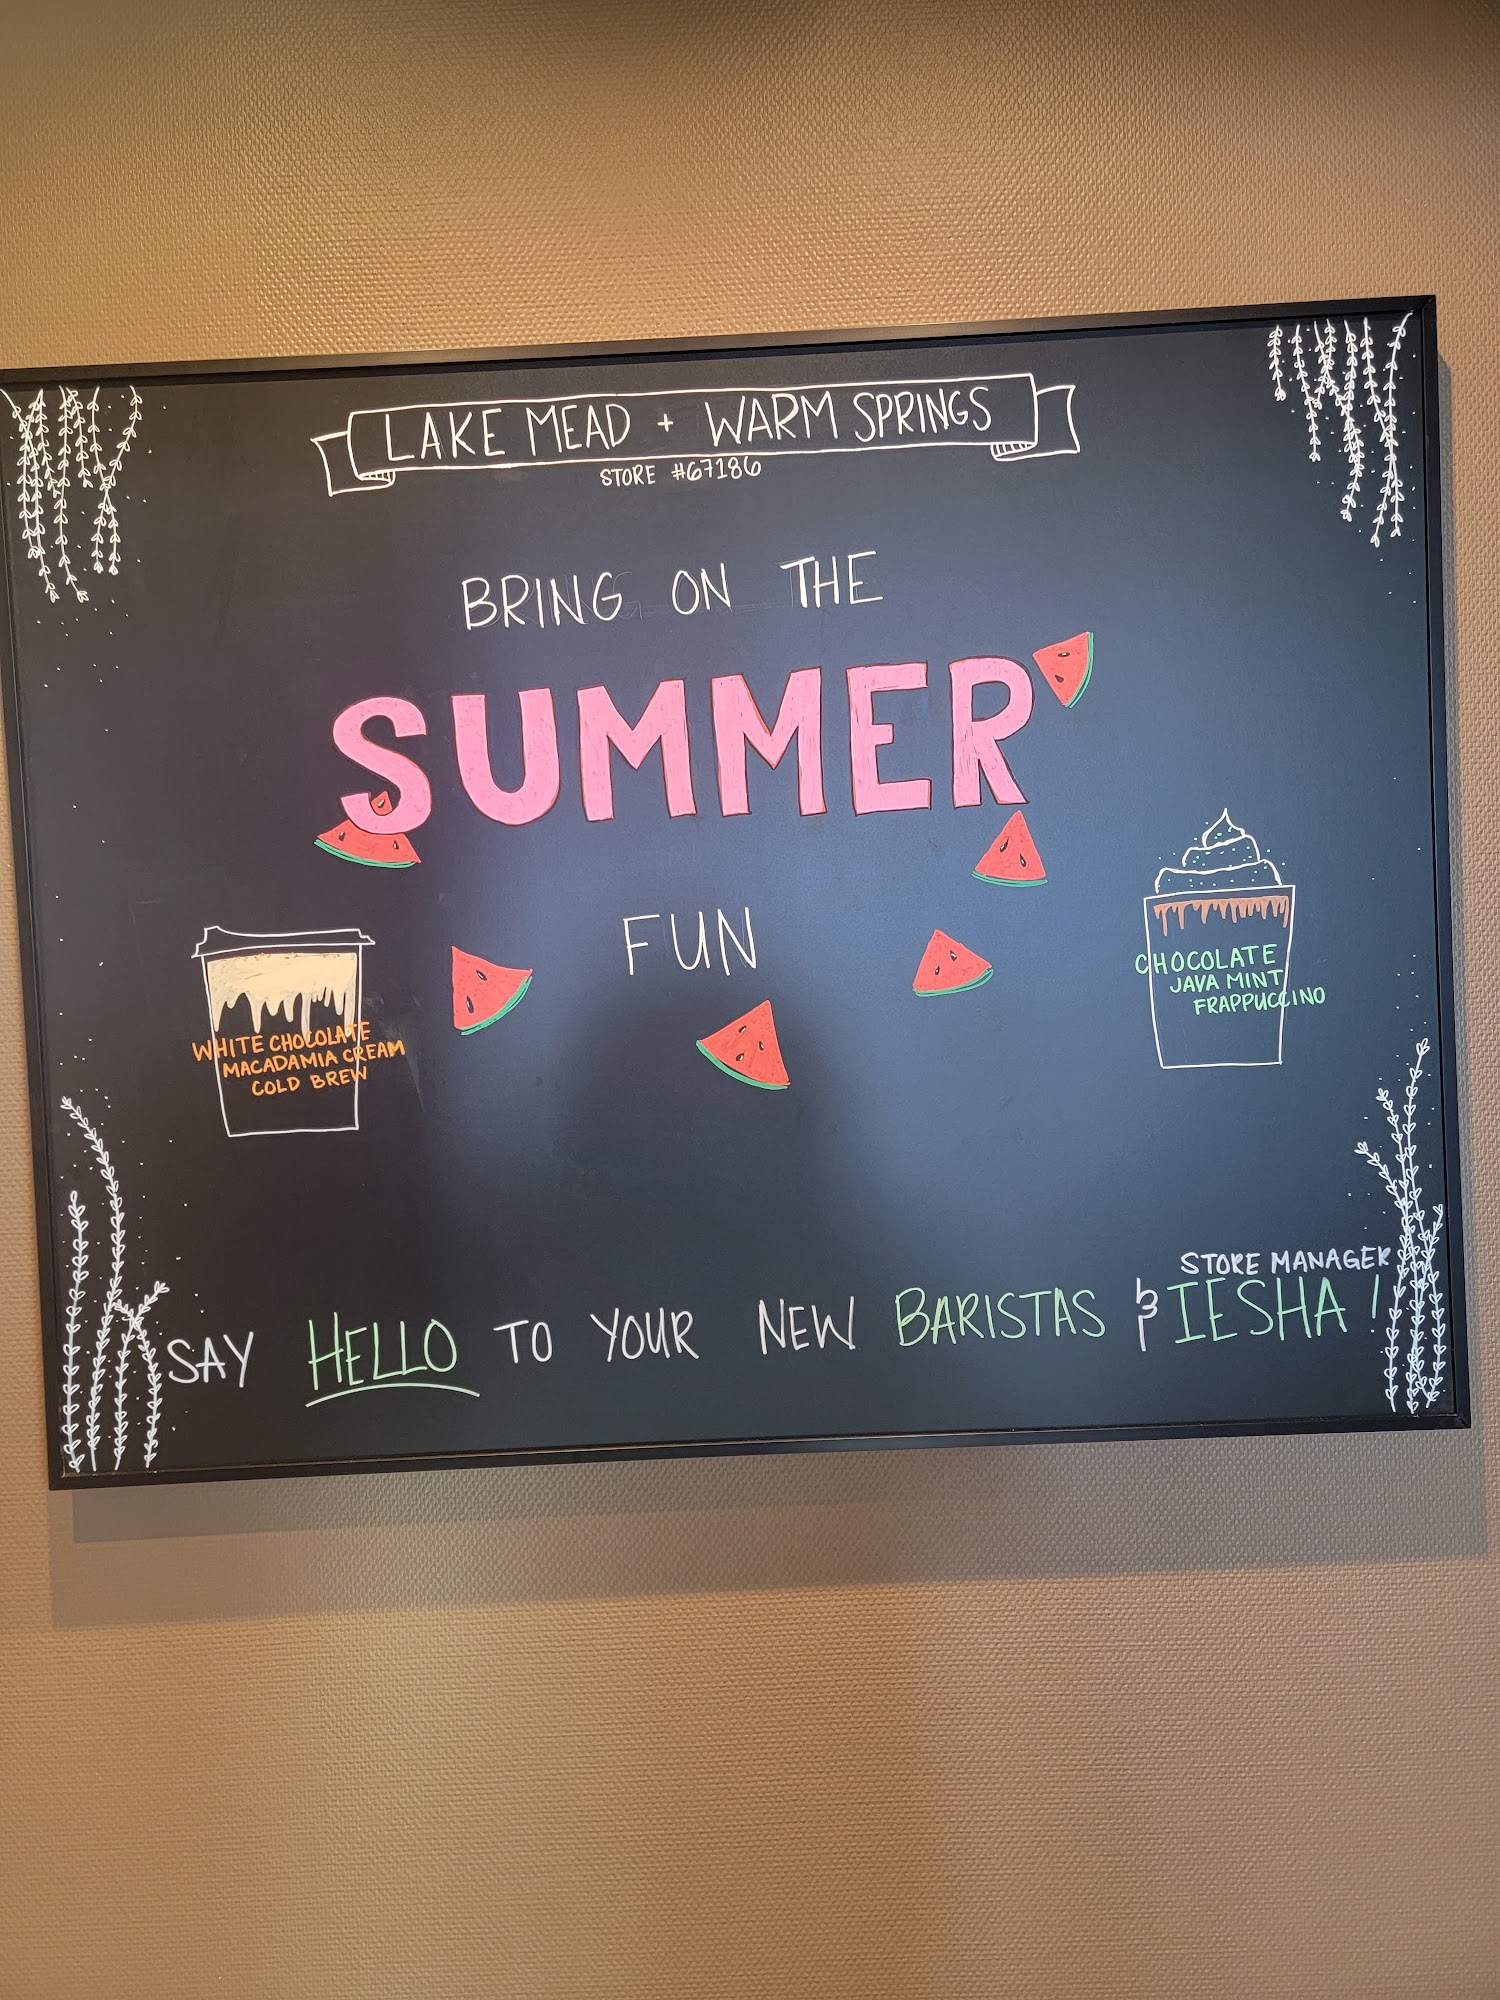 LAKE MEAD + WARM SPRINGS
STORE #67186
BRING ON THE
SUMMER
FUN
WHITE CHOCOLATE
MACADAMIA CREAM
COLD BREW
CHOCOLATE
JAVA MINT
FRAPPUCCINO
STORE MANAGER
SAY HELLO TO YOUR NEW BARISTAS & IESHA!